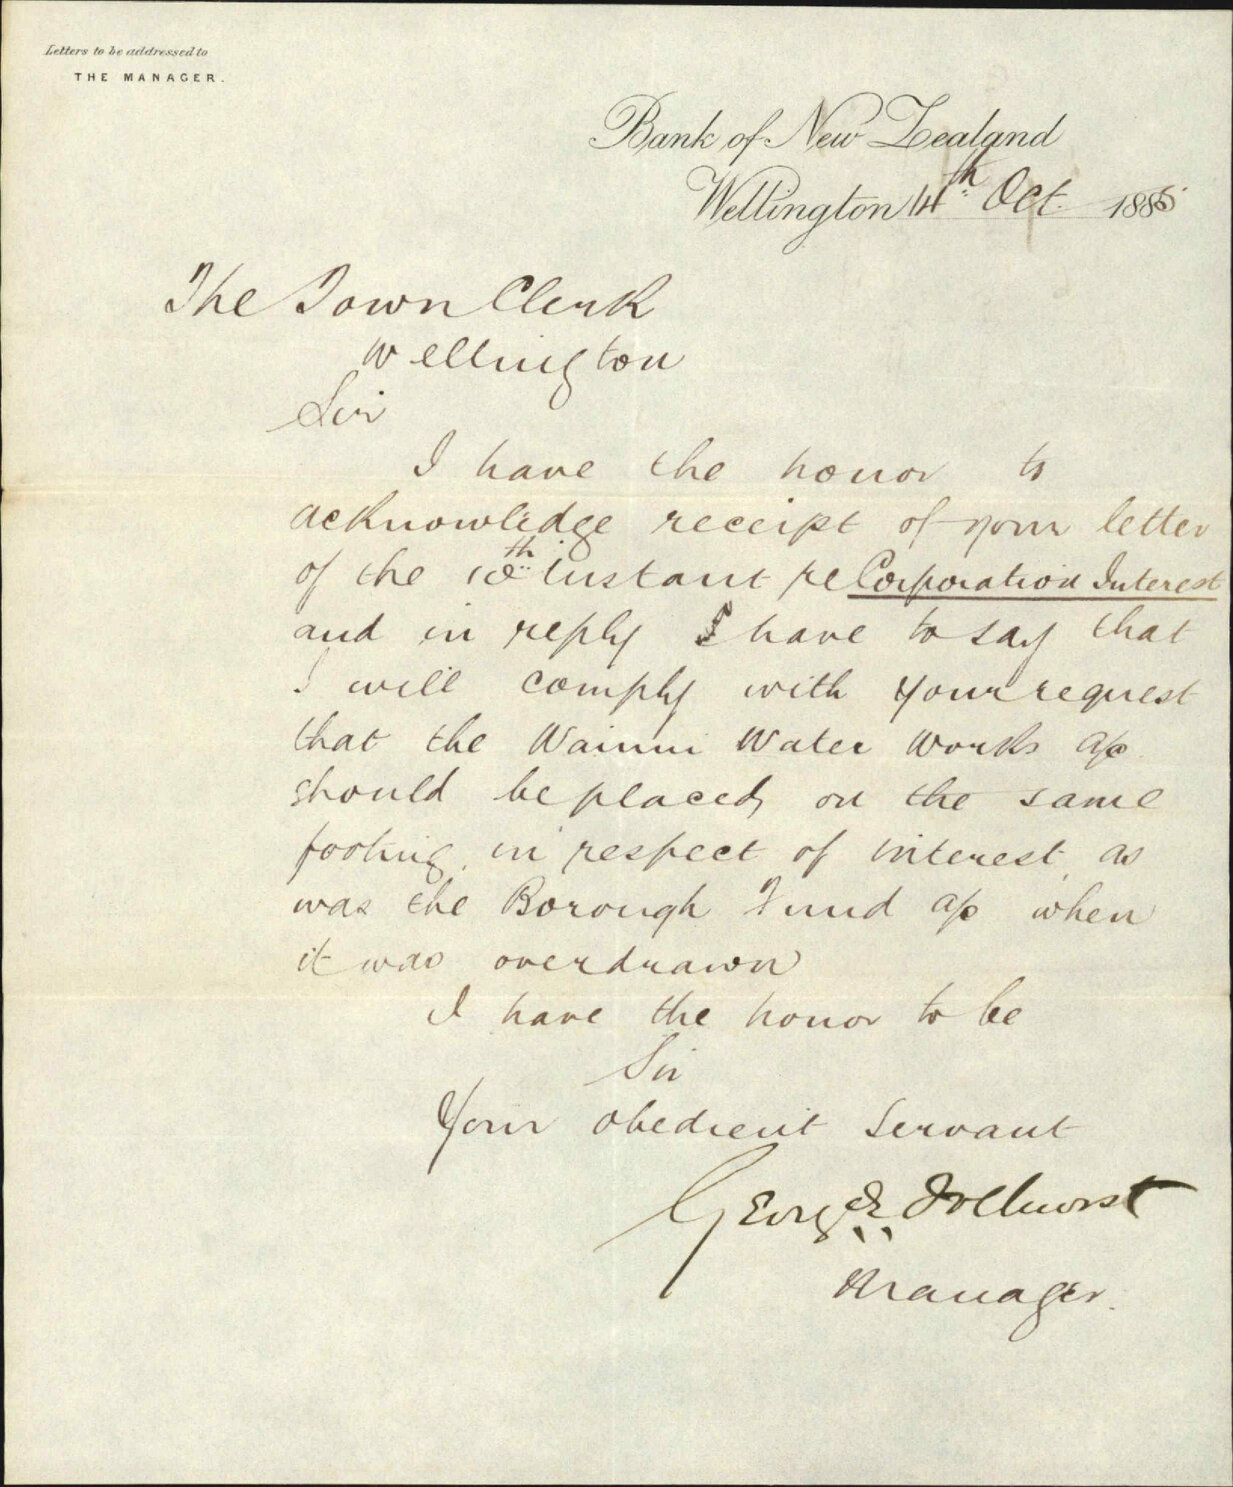 Letters to be addressed to
THE MANAGER.
Bank of New Zealand
Wellington 14th Oct 1885
The Town Clerk
Wellington
Sir
I have the honor to
acknowledge receipt of your letter
of the 10th instant re Corporation Interest
and in reply I have to say that
I will comply with your request
that the Wainui Water Works a/c
should be placed, on the same
footing, in respect of interest, as
was the Borough Fund a/c when
it was overdrawn
I have the honor to be
Sir
Your obedient servant
George Tolhurst
Manager.